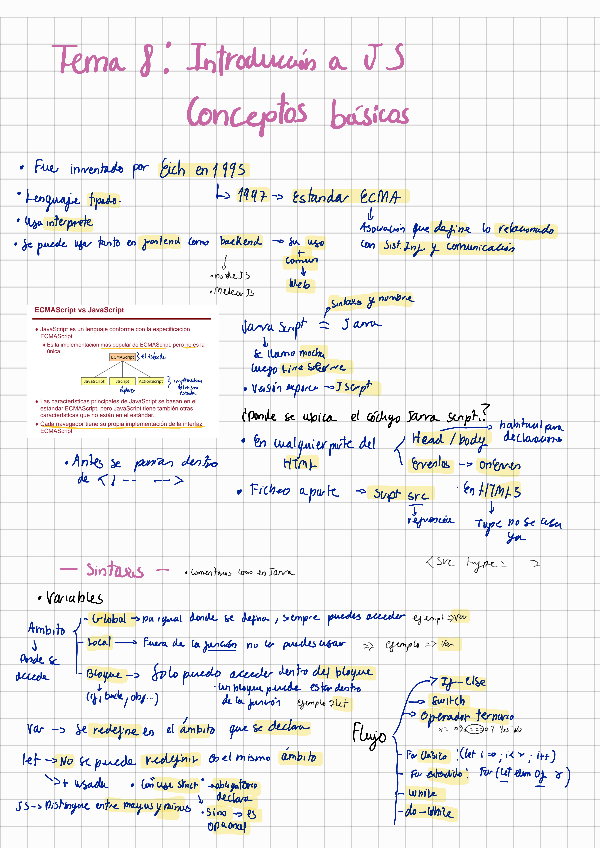 Tema 8: Introducción a JS
Conceptos básicos
• Fue inventado por Eich en 1995
↳ 1997 → Estandar ECMA
• Lenguaje tipado.
• Usa interprete
Asociación que define lo relacionado
con Sist. Inf y comunicación
• Se puede usar tanto en frontend como backend → su uso
+
comun
Web
• node JS
• Meteor JS
ECMAScript vs JavaScript
JavaScript es un lenguaje conforme con la especificación
ECMAScript
Es la implementación más popular de ECMAScript pero no es la
única
ECMAScript
JavaScript JScript ActionScript
Las características principales de JavaScript se basan en el
estándar ECMAScript, pero JavaScript tiene también otras
características que no están en el estándar
Cada navegador tiene su propia implementación de la interfaz
ECMAScript
sintaxis y nombre
Java script = Java
se llamo mocha
luego Live
• Versión → JScript
¿Donde se ubica el código Java script?
• En cualquier parte del
HTML
Head / body
habitual para
declaraciones
Eventos → onEvent
• Antes se ponían dentro
de <!-- -->
• Fichero aparte → Script src
referencia
En HTML5
Type no se usa
ya
<Src type=
— Sintaxis —
• Comentarios como en Java
• Variables
Ambito
Donde se
accede
- Global → Da igual donde se defina, siempre puedes acceder ejempl → Var
- Local → Fuera de la función no lo puedes usar => ejemplo => Var
- Bloque → Solo puedo acceder dentro del bloque
(if, bucle, obj...)
- Un bloque puede estar dentro
de la función ejemplo let
Var → Se redefine en el ámbito que se declara
let → No se puede redefinir en el mismo ámbito
↳ + usada
• Con "use strict" → obligatorio
declara
• Si no → es
opcional
JS → Distingue entre mayus y minus
Flujo
If-Else
Switch
Operador ternario
- For Clásico: (let i=0; i<r; i++)
- For extendido: For (let elem Of r)
- While
- do-While